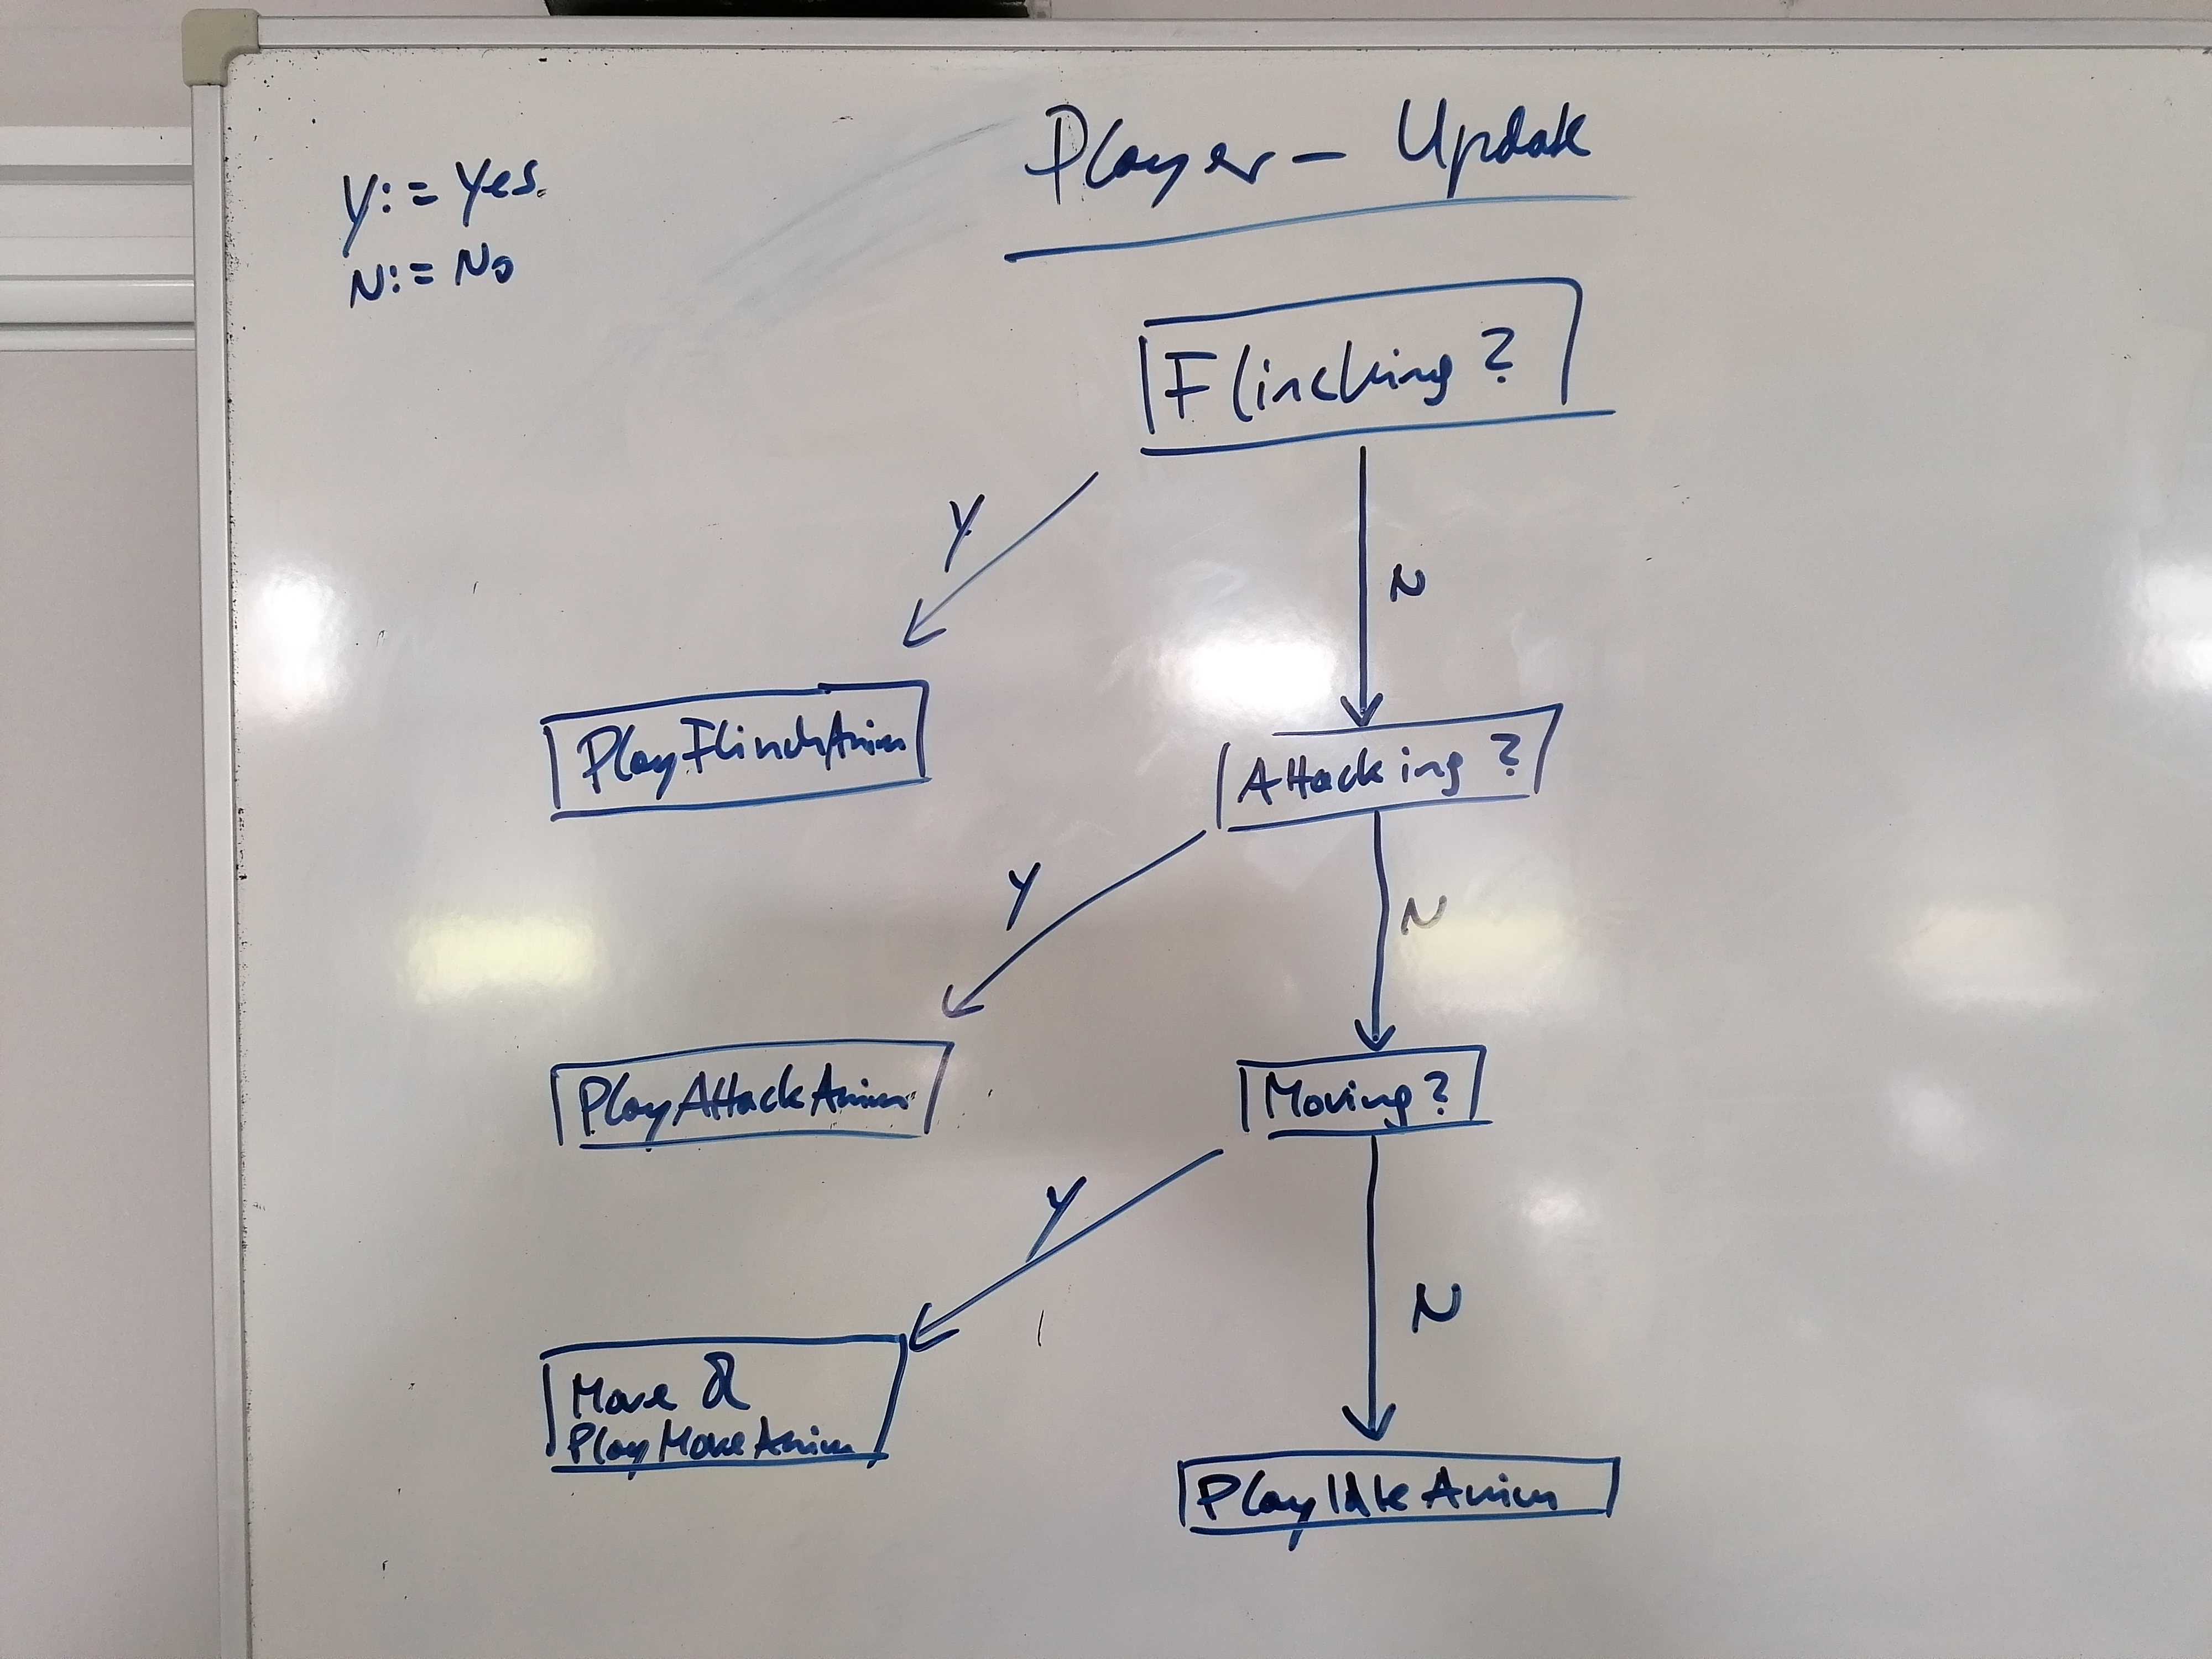 Player - Update
Y:= Yes
N:= No
Flinching?
Y
N
PlayFlinchAnim
Attacking?
Y
N
PlayAttackAnim
Moving?
Y
N
Move &
PlayMoveAnim
PlayIdleAnim